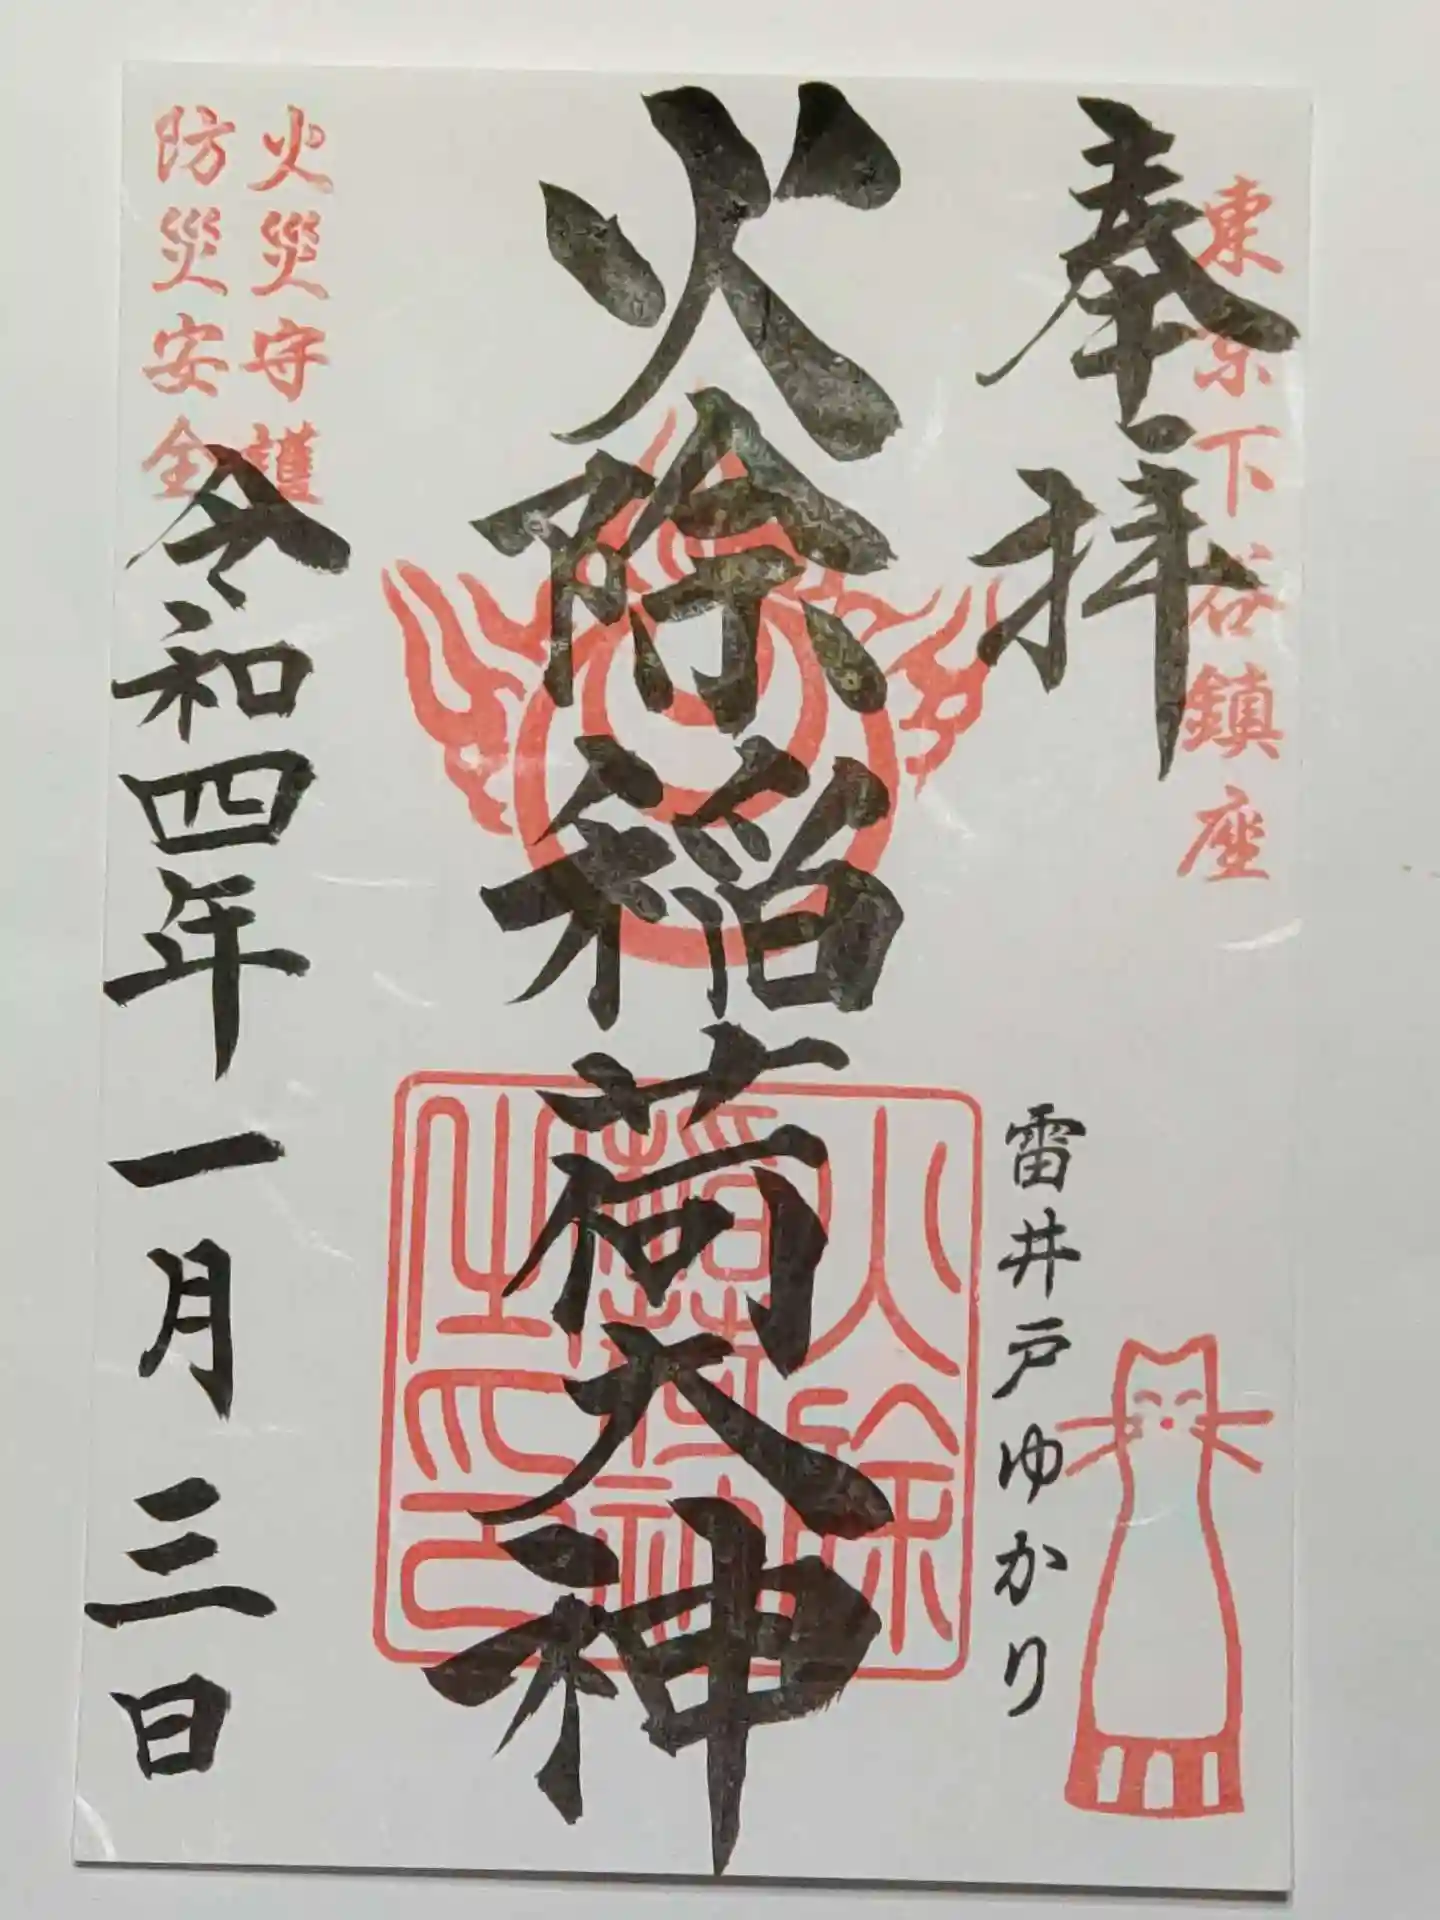 東京下谷鎮座
奉拝
雷井戸ゆかり
火除稲荷大神
火除
稲荷神
之印
火災守護
防災安全
令和四年一月三日